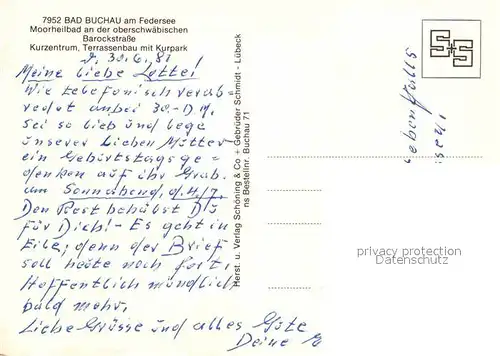 7952 BAD BUCHAU am Federsee
Moorheilbad an der oberschwäbischen
Barockstraße
Kurzentrum, Terrassenbau mit Kurpark
d. 30.6.81
Meine liebe Lotte!
Wie telefonisch verab=
redet anbei 30.- DM.
Sei so lieb und lege
unserer lieben Mutter
ein Geburtstagsge=
denken auf ihr Grab.
am Sonnabend, d. 4./7.
Den Rest behälst Du
für Dich! - Es geht in
Eile, denn der Brief
soll heute noch fort.
Hoffentlich mündlich
bald mehr.
Liebe Grüsse und alles Gute
Deine
Herst. u. Verlag Schöning & Co + Gebrüder Schmidt - Lübeck
ns Bestellnr. Buchau 71
S+S
ebenfalls
privacy protection
DATENSCHUTZ